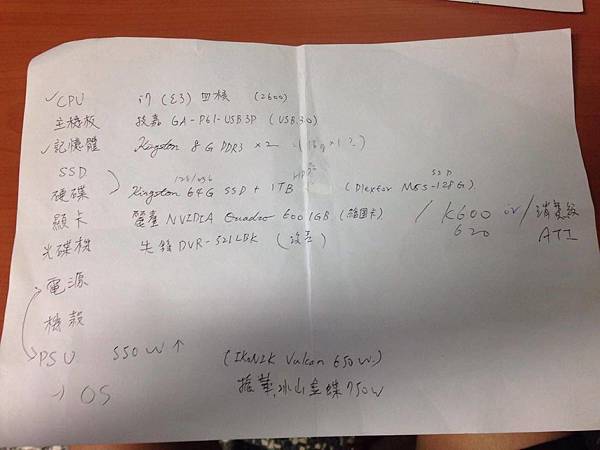 ✓CPU i7 (E3) 四核 (2600)
主機板 技嘉 GA-P61-USB3P (USB3.0)
✓記憶體 Kingston 8G DDR3 ×2 (16g×1?)
SSD
硬碟 Kingston 64G SSD + 1TB (Plextor M5S-128G)
128/256 SSD
顯卡 麗臺 NVIDIA Quadro 600 1GB (繪圖卡) / K600 or / 消費級
620 ATI
光碟機 先鋒 DVR-S21LBK
電源
機殼
PSU 550W↑ (IKONIK Vulkan 650W)
→ OS 振華,冰山金蝶750W